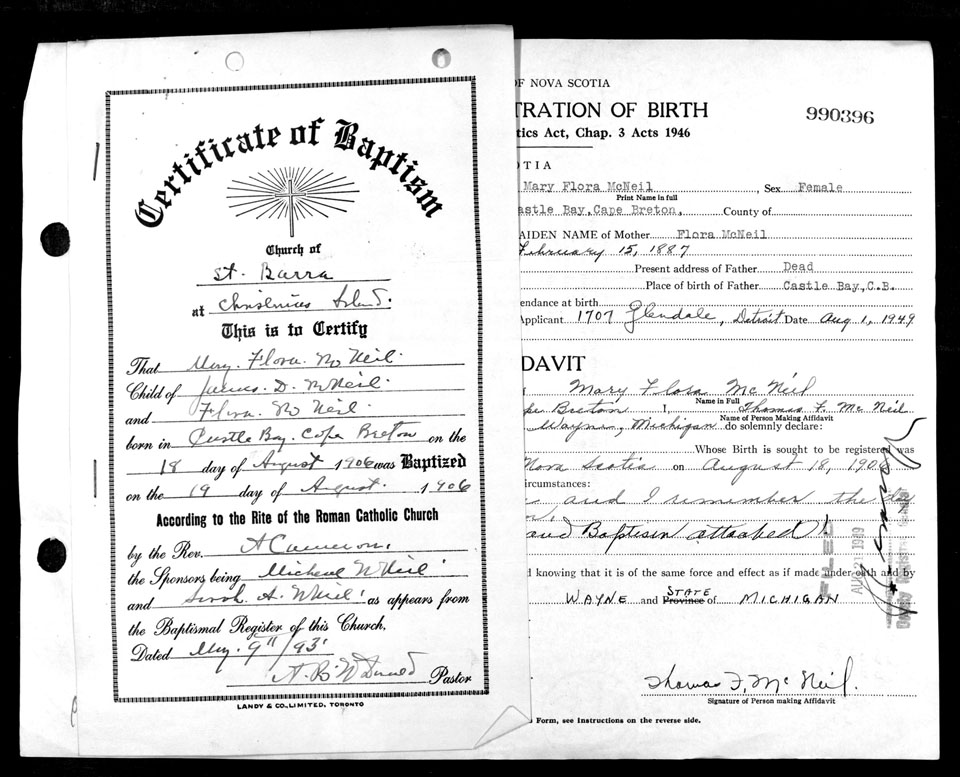 Certificate of Baptism
Church of
St. Barra
at Christmas Island.
This is to Certify
That Mary. Flora. McNeil.
Child of James. D. McNeil.
and Flora. McNeil.
born in Castle Bay. Cape Breton on the
18 day of August 1906 was Baptized
on the 19 day of August. 1906
According to the Rite of the Roman Catholic Church
by the Rev. A Cameron.
the Sponsors being Micheal McNeil
and Sarah. A. McNeil as appears from
the Baptismal Register of this Church.
Dated May. 9th
Pastor
LANDY & CO., LIMITED, TORONTO
OF NOVA SCOTIA
TRATION OF BIRTH
990396
tics Act, Chap. 3 Acts 1946
OTIA
Mary Flora McNeil, Sex Female
Print Name in full
astle Bay, Cape Breton, County of
AIDEN NAME of Mother Flora McNeil
February 15, 1887
Present address of Father Dead
Place of birth of Father Castle Bay, C.B.
endance at birth
Applicant 1707 Glendale, Detroit Date Aug 1, 1949
DAVIT
Mary Flora McNeil
Name in Full
Breton I, Thomas F. McNeil
Name of Person Making Affidavit
Wayne, Michigan do solemnly declare:
Whose Birth is sought to be registered was
Nova Scotia on August 18, 1906
ircumstances:
and I remember the day
and Baptism attached
FILED
AUG 21 1949
d knowing that it is of the same force and effect as if made under oath and by
WAYNE and Province STATE of MICHIGAN
Thomas F. McNeil.
Signature of Person making Affidavit
Form, see instructions on the reverse side.